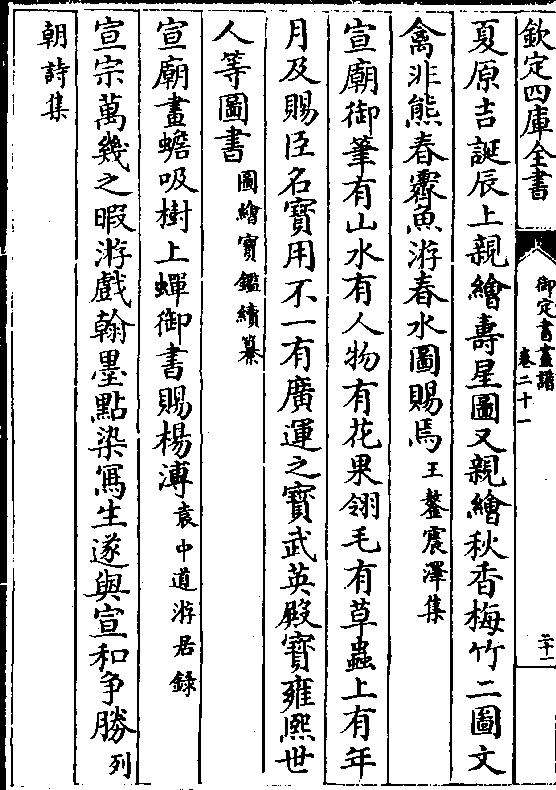 欽定四庫全書
御定書畫譜
卷二十一
二十一
夏原吉誕辰上親繪壽星圖又親繪秋香梅竹二圖文
禽非熊春霽魚游春水圖賜焉王鏊震澤集
宣廟御筆有山水有人物有花果翎毛有草蟲上有年
月及賜臣名寶用不一有廣運之寶武英殿寶雍熙世
人等圖書圖繪寶鑑續纂
宣廟畫蟾吸樹上蟬御書賜楊溥袁中道游居錄
宣宗萬幾之暇游戲翰墨點染寫生遂與宣和争勝列
朝詩集